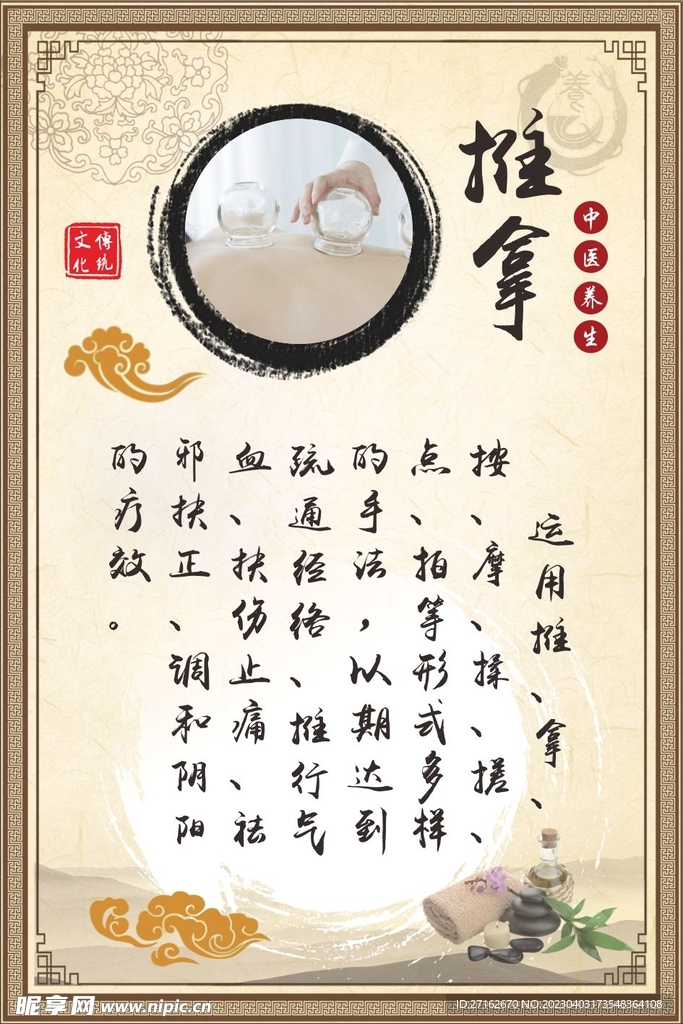 养
推拿
中医养生
傳統
文化
运用推、拿、
按、摩、揉、搓、
点、拍等形式多样
的手法，以期达到
疏通经络、推行气
血、扶伤止痛、祛
邪扶正、调和阴阳
的疗效。
昵享网 www.nipic.cn
ID:27162670 NO:20230403173548364108